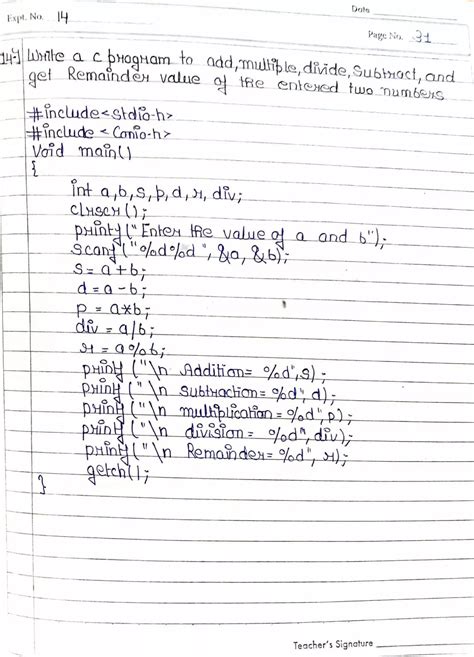 Expt. No. 14
Date
Page No. 31
14-] Write a c program to add, multiple, divide, Subtract, and
get Remainder value of the entered two numbers
#include<stdio.h>
#include < Conio.h>
Void main()
{
int a,b,s,p,d,r,div;
clrscr();
printf("Enter the value of a and b");
scanf("%d%d", &a, &b);
s= a+b;
d= a-b;
p = a*b;
div = a/b;
r = a%b;
printf ("\n Addition= %d",s);
printf ("\n Subtraction= %d", d);
printf ("\n multiplication = %d",p);
printf ("\n division = %d", div);
printf ("\n Remainder= %d", r);
getch();
}
Teacher's Signature